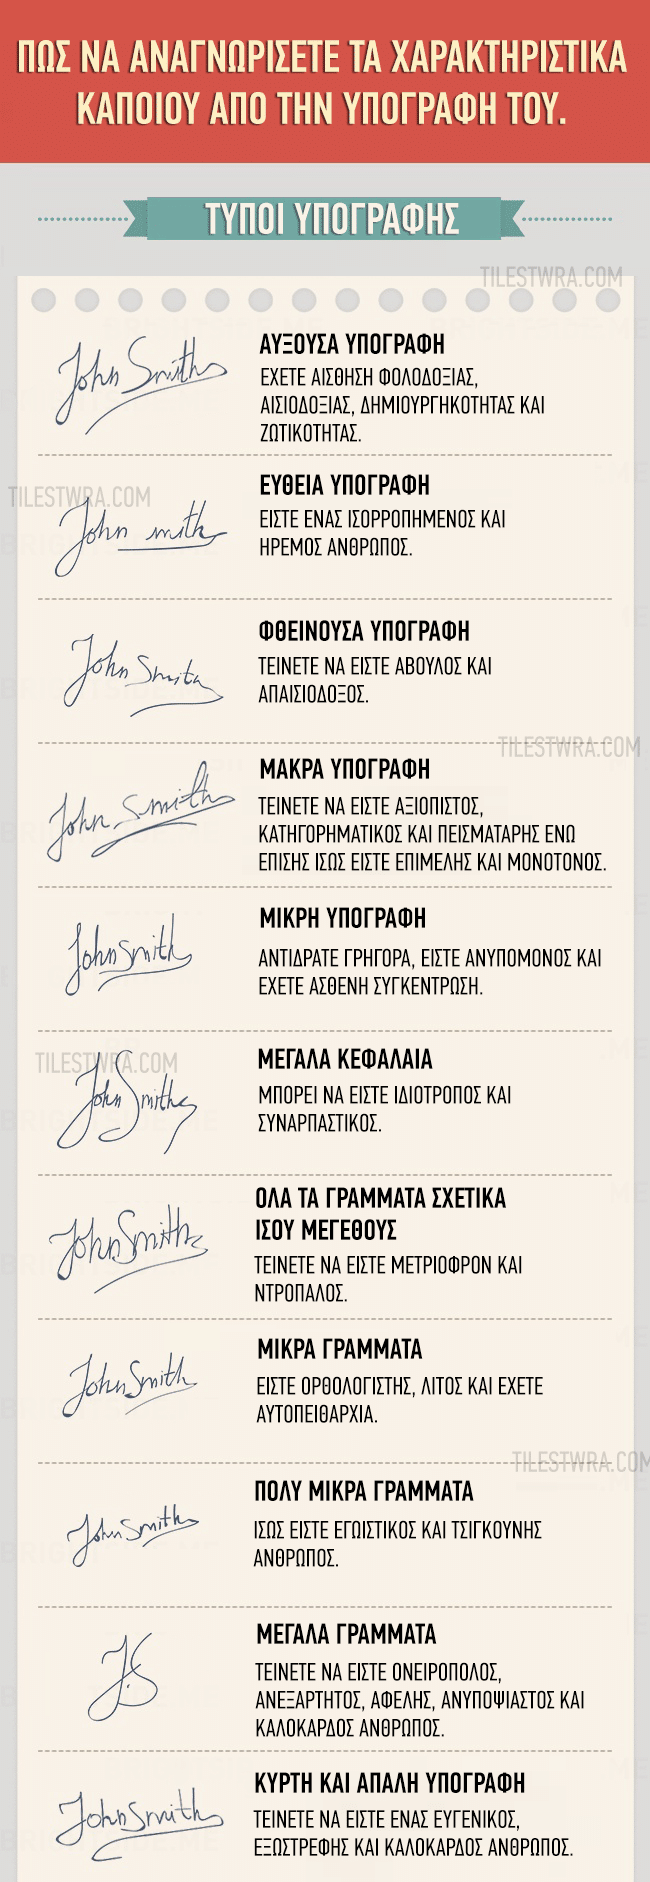 ΠΩΣ ΝΑ ΑΝΑΓΝΩΡΙΣΕΤΕ ΤΑ ΧΑΡΑΚΤΗΡΙΣΤΙΚΑ
ΚΑΠΟΙΟΥ ΑΠΟ ΤΗΝ ΥΠΟΓΡΑΦΗ ΤΟΥ.
ΤΥΠΟΙ ΥΠΟΓΡΑΦΗΣ
TILESTWRA.COM
John Smith
ΑΥΞΟΥΣΑ ΥΠΟΓΡΑΦΗ
ΕΧΕΤΕ ΑΙΣΘΗΣΗ ΦΟΛΟΔΟΞΙΑΣ,
ΑΙΣΙΟΔΟΞΙΑΣ, ΔΗΜΙΟΥΡΓΗΚΟΤΗΤΑΣ ΚΑΙ
ΖΩΤΙΚΟΤΗΤΑΣ.
TILESTWRA.COM
John smith
ΕΥΘΕΙΑ ΥΠΟΓΡΑΦΗ
ΕΙΣΤΕ ΕΝΑΣ ΙΣΟΡΡΟΠΗΜΕΝΟΣ ΚΑΙ
ΗΡΕΜΟΣ ΑΝΘΡΩΠΟΣ.
John Smith
ΦΘΕΙΝΟΥΣΑ ΥΠΟΓΡΑΦΗ
ΤΕΙΝΕΤΕ ΝΑ ΕΙΣΤΕ ΑΒΟΥΛΟΣ ΚΑΙ
ΑΠΑΙΣΙΟΔΟΞΟΣ.
TILESTWRA.COM
John Smith
ΜΑΚΡΑ ΥΠΟΓΡΑΦΗ
ΤΕΙΝΕΤΕ ΝΑ ΕΙΣΤΕ ΑΞΙΟΠΙΣΤΟΣ,
ΚΑΤΗΓΟΡΗΜΑΤΙΚΟΣ ΚΑΙ ΠΕΙΣΜΑΤΑΡΗΣ ΕΝΩ
ΕΠΙΣΗΣ ΙΣΩΣ ΕΙΣΤΕ ΕΠΙΜΕΛΗΣ ΚΑΙ ΜΟΝΟΤΟΝΟΣ.
John Smith
ΜΙΚΡΗ ΥΠΟΓΡΑΦΗ
ΑΝΤΙΔΡΑΤΕ ΓΡΗΓΟΡΑ, ΕΙΣΤΕ ΑΝΥΠΟΜΟΝΟΣ ΚΑΙ
ΕΧΕΤΕ ΑΣΘΕΝΗ ΣΥΓΚΕΝΤΡΩΣΗ.
TILESTWRA.COM
John Smith
ΜΕΓΑΛΑ ΚΕΦΑΛΑΙΑ
ΜΠΟΡΕΙ ΝΑ ΕΙΣΤΕ ΙΔΙΟΤΡΟΠΟΣ ΚΑΙ
ΣΥΝΑΡΠΑΣΤΙΚΟΣ.
John Smith
ΟΛΑ ΤΑ ΓΡΑΜΜΑΤΑ ΣΧΕΤΙΚΑ
ΙΣΟΥ ΜΕΓΕΘΟΥΣ
ΤΕΙΝΕΤΕ ΝΑ ΕΙΣΤΕ ΜΕΤΡΙΟΦΡΟΝ ΚΑΙ
ΝΤΡΟΠΑΛΟΣ.
John Smith
ΜΙΚΡΑ ΓΡΑΜΜΑΤΑ
ΕΙΣΤΕ ΟΡΘΟΛΟΓΙΣΤΗΣ, ΛΙΤΟΣ ΚΑΙ ΕΧΕΤΕ
ΑΥΤΟΠΕΙΘΑΡΧΙΑ.
TILESTWRA.COM
John Smith
ΠΟΛΥ ΜΙΚΡΑ ΓΡΑΜΜΑΤΑ
ΙΣΩΣ ΕΙΣΤΕ ΕΓΩΙΣΤΙΚΟΣ ΚΑΙ ΤΣΙΓΚΟΥΝΗΣ
ΑΝΘΡΩΠΟΣ.
J.S
ΜΕΓΑΛΑ ΓΡΑΜΜΑΤΑ
ΤΕΙΝΕΤΕ ΝΑ ΕΙΣΤΕ ΟΝΕΙΡΟΠΟΛΟΣ,
ΑΝΕΞΑΡΤΗΤΟΣ, ΑΦΕΛΗΣ, ΑΝΥΠΟΨΙΑΣΤΟΣ ΚΑΙ
ΚΑΛΟΚΑΡΔΟΣ ΑΝΘΡΩΠΟΣ.
John Smith
ΚΥΡΤΗ ΚΑΙ ΑΠΑΛΗ ΥΠΟΓΡΑΦΗ
ΤΕΙΝΕΤΕ ΝΑ ΕΙΣΤΕ ΕΝΑΣ ΕΥΓΕΝΙΚΟΣ,
ΕΞΩΣΤΡΕΦΗΣ ΚΑΙ ΚΑΛΟΚΑΡΔΟΣ ΑΝΘΡΩΠΟΣ.